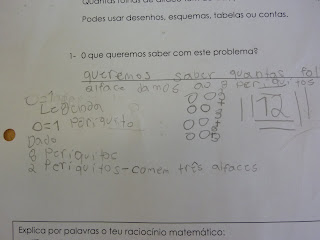 Quantas folhas de alface
Podes usar desenhos, esquemas, tabelas ou contas.
1- O que queremos saber com este problema?
queremos saber quantas fol
alface damos ao 8 periquitos
Legenda
0=1 Periquito
12
Dado
8 periquitos
2 Periquitos-comem três alfaces
Explica por palavras o teu raciocínio matemático: